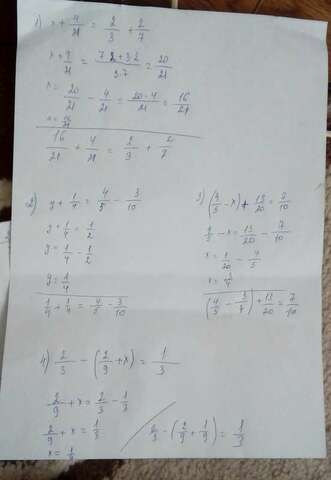 1) x + 4/21 = 2/3 + 2/7
x + 4/21 = (7·2+3·2)/(3·7) = 20/21
x = 20/21 - 4/21 = (20-4)/21 = 16/21
x = 16/21
16/21 + 4/21 = 2/3 + 2/7
2) y + 1/4 = 4/5 - 3/10
y + 1/4 = 1/2
y = 1/4 - 1/2
y = 1/4
1/4 + 1/4 = 4/5 - 3/10
3) (4/5 - x) + 13/20 = 7/10
4/5 - x = 13/20 - 7/10
x = 1/20 - 4/5
x = 3/4
(4/5 - 3/7) + 13/20 = 7/10
4) 2/3 - (2/9 + x) = 1/3
2/9 + x = 2/3 - 1/3
2/9 + x = 1/3
x = 1/9
2/3 - (2/9 + 1/9) = 1/3